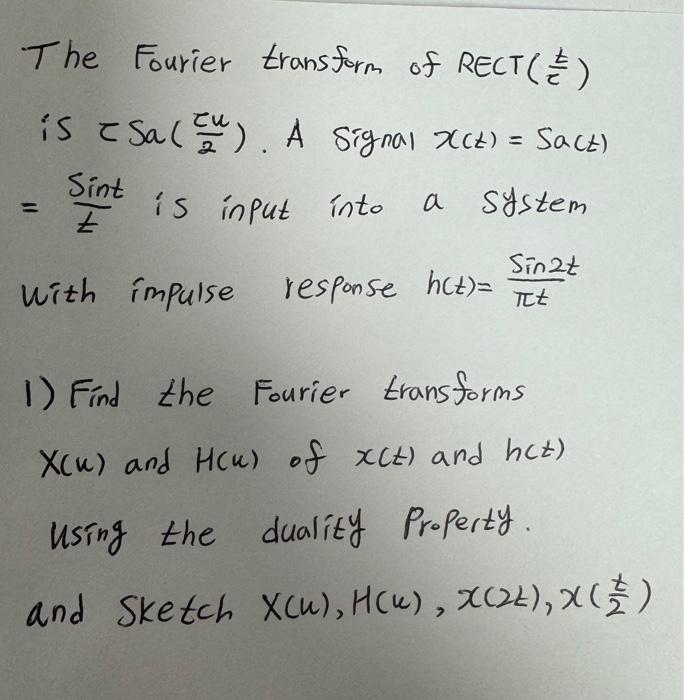 The Fourier transform of RECT(t/τ)
is τSa(τu/2). A signal x(t) = Sa(t)
= Sint/t is input into a system
with impulse response h(t)= Sin2t/πt
1) Find the Fourier transforms
X(u) and H(u) of x(t) and h(t)
using the duality Property.
and Sketch X(u), H(u), x(2t), x(t/2)